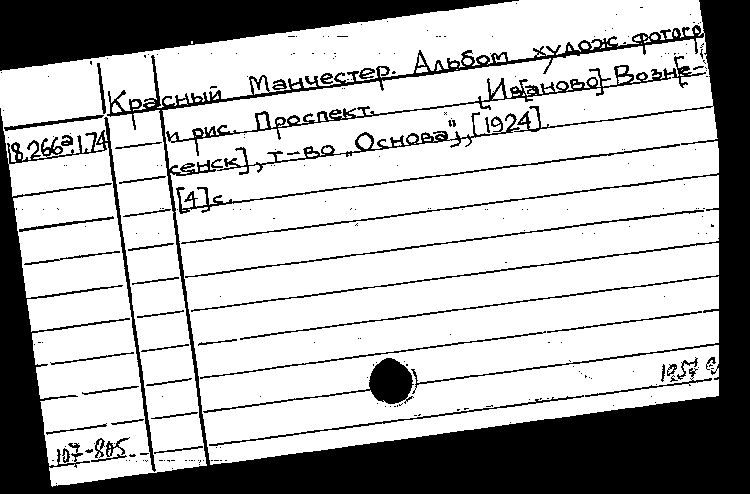 Красный Манчестер. Альбом худож. фотогр
и рис. Проспект. [Ив[аново]-Возн[е=
18.266ª.1.74
сенск], т-во „Основа“], [1924].
[4] с.
1957
107-805